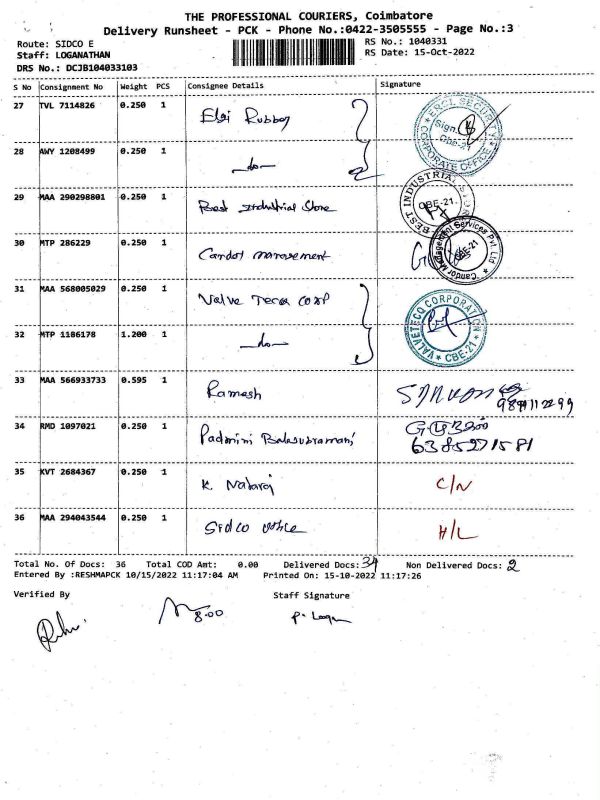 THE PROFESSIONAL COURIERS, Coimbatore
Delivery Runsheet - PCK - Phone No.:0422-3505555 - Page No.:3
Route: SIDCO E RS No.: 1040331
Staff: LOGANATHAN RS Date: 15-Oct-2022
DRS No.: DCJB104033103
S No Consignment No Weight PCS Consignee Details Signature
27 TVL 7114826 0.250 1 Elgi Rubber
28 AWY 1208499 0.250 1 -do-
29 MAA 290298801 0.250 1 Best Industrial Store
30 MTP 286229 0.250 1 Candor management
31 MAA 568005029 0.250 1 Valve Teca corp
32 MTP 1186178 1.200 1 -do-
33 MAA 566933733 0.595 1 Ramesh
34 RMD 1097021 0.250 1 Padmini Balasubramani 6385271581
35 KVT 2684367 0.250 1 K. Nataraj C/N
36 MAA 294043544 0.250 1 Sidco office H/L
ERCL SECURITY
Sign.
Cbe-21
CORPORATE OFFICE
BEST INDUSTRIAL STORE
CBE-21.
Candor Management Services Pvt. Ltd
CBE-21
VALVETECO CORPORATION
CBE-21
Total No. Of Docs: 36 Total COD Amt: 0.00 Delivered Docs: 34 Non Delivered Docs: 2
Entered By :RESHMAPCK 10/15/2022 11:17:04 AM Printed On: 15-10-2022 11:17:26
Verified By Staff Signature
8.00 P. Logan